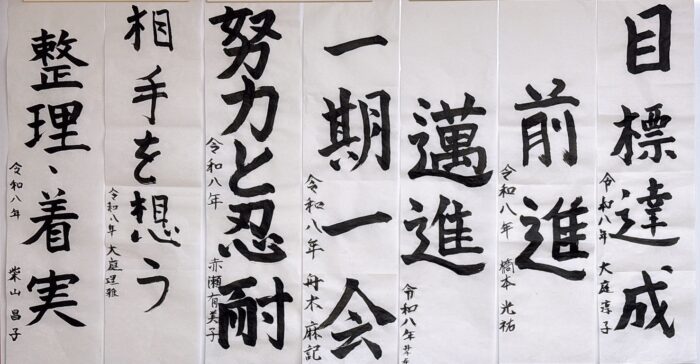 目標達成
令和八年 大庭淳子
前進
令和八年 橋本光祐
邁進
令和八年
一期一会
令和八年 舟木麻記
努力と忍耐
令和八年 赤瀬有美子
相手を想う
令和八年 大庭理雅
整理、着実
令和八年 柴山昌子